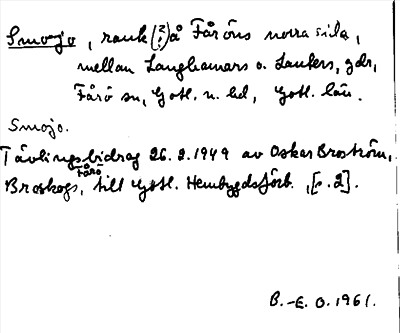 Smojo, rauk (?) å Fåröns norra sida,
mellan Langhamars o. Lauters, gdr,
Fårö sn, Gotl. n. hd, Gotl. län.
Smojo.
Tävlingsbidrag 26.2.1949 av Oskar Broström,
Broskogs, Fårö till Gotl. Hembygdsförb., [s. 2].
B.-E. O. 1961.